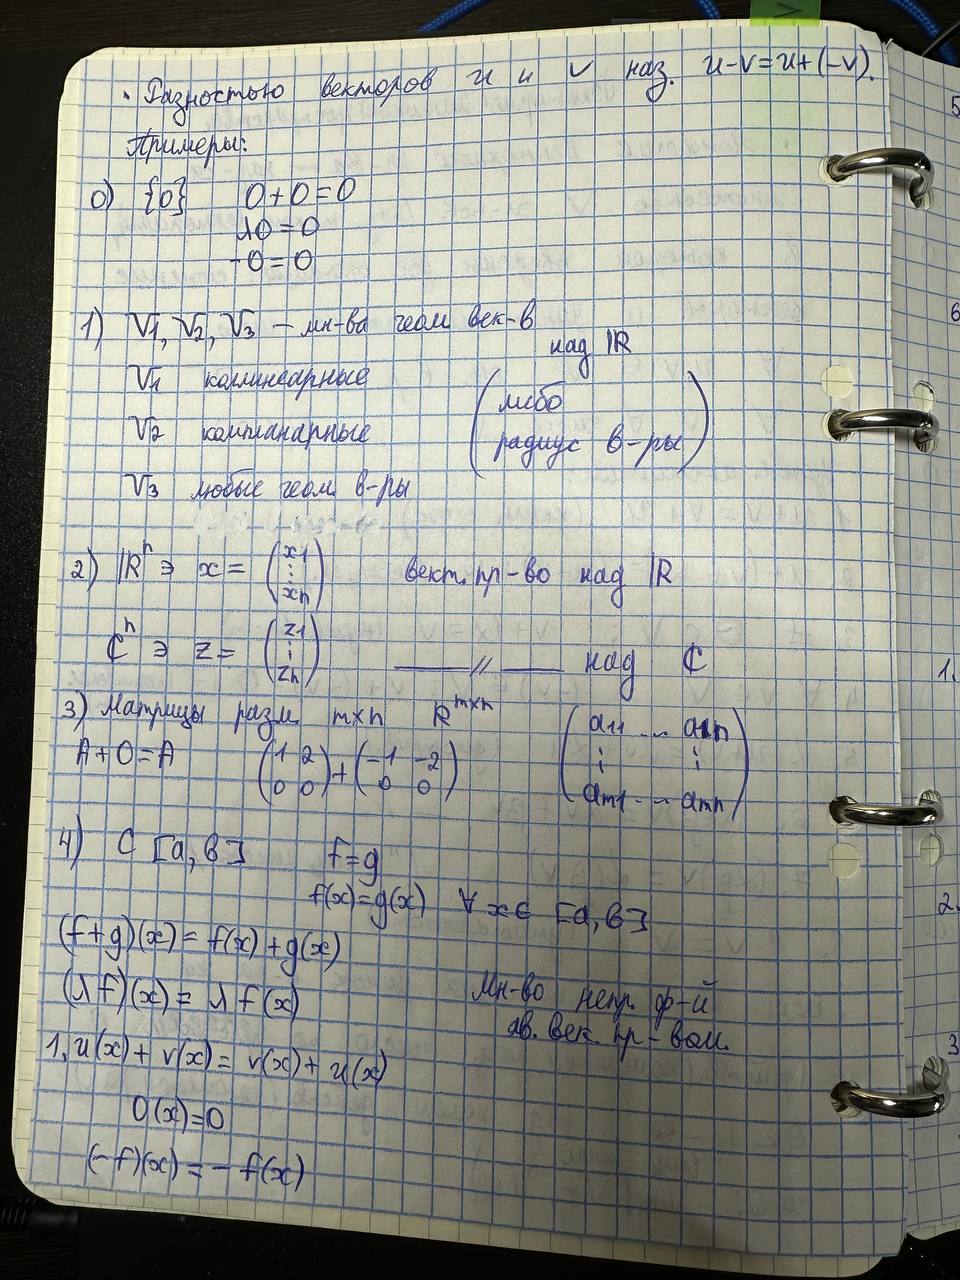 · Разностью векторов u и v наз. u-v=u+(-v).
Примеры:
0) {0} 0+0=0
λ0=0
-0=0
1) V1, V2, V3 – мн-ва геом век-в
над ℝ
V1 коллинеарные
(либо
V2 компланарные радиус в-ры)
V3 любые геом. в-ры
2) ℝⁿ ∋ x = (x1 ⋮ xn) вект. пр-во над ℝ
ℂⁿ ∋ z = (z1 ⋮ zn) ——〃—— над ℂ
3) Матрицы разм. m×n R^m×n (a11 ... a1n
A+O=A (1 2 0 0)+(-1 -2 0 0) ⋮ ⋮
am1 ... amn)
4) C [a,b] f=g
f(x)=g(x) ∀ x∈ [a,b]
(f+g)(x)= f(x)+g(x)
(λf)(x)= λ f(x) Мн-во непр. ф-й
яв. век. пр-вом.
1. u(x)+ v(x)= v(x)+ u(x)
0(x)=0
(-f)(x)= - f(x)
5
6
1.
2.
3